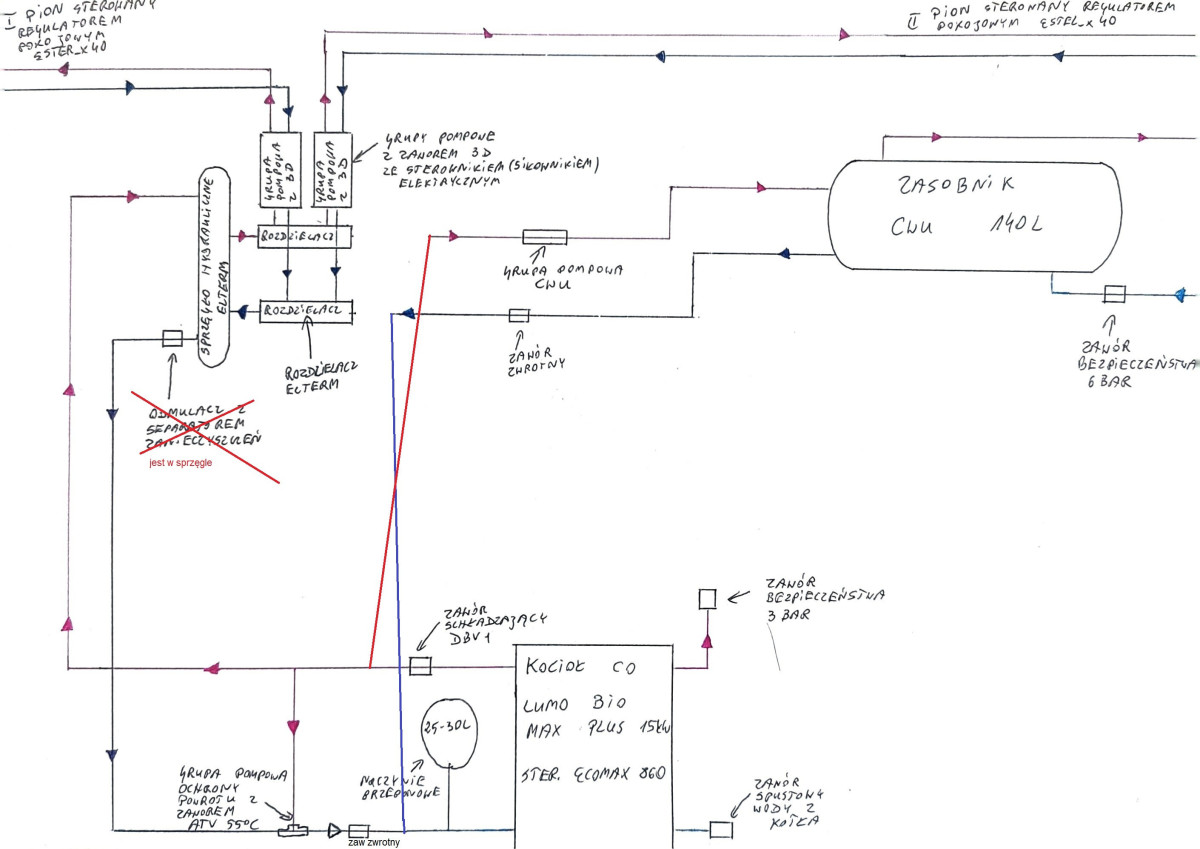 I PION STEROWANY
REGULATOREM
POKOJOWYM
ESTER_x40
II PION STEROWANY REGULATOREM
POKOJOWYM ESTEL_x40
GRUPA
POMPOWA
Z 3D
GRUPA
POMPOWA
Z 3D
GRUPY POMPOWE
Z ZAWOREM 3D
ZE STEROWNIKIEM (SIŁOWNIKIEM)
ELEKTRYCZNYM
SPRZĘGŁO HYDRAULICZNE
ELTERM
ROZDZIELACZ
ROZDZIELACZ
ROZDZIELACZ
ELTERM
ZASOBNIK
CWU 140L
GRUPA POMPOWA
CWU
ZAWÓR
ZWROTNY
ZAWÓR
BEZPIECZEŃSTWA
6 BAR
ODMULACZ Z
SEPARATOREM
ZANIECZYSZCZEŃ
jest w sprzęgle
ZAWÓR
SCHŁADZAJĄCY
DBV1
ZAWÓR
BEZPIECZEŃSTWA
3 BAR
KOCIOŁ CO
LUMO BIO
MAX PLUS 15kW
STER. ECOMAX 860
25-30L
NACZYNIE
PRZEPONOWE
GRUPA POMPOWA
OCHRONY
POWROTU Z
ZAWOREM
ATV 55°C
zaw zwrotny
ZAWÓR
SPUSTOWY
WODY Z
KOTŁA